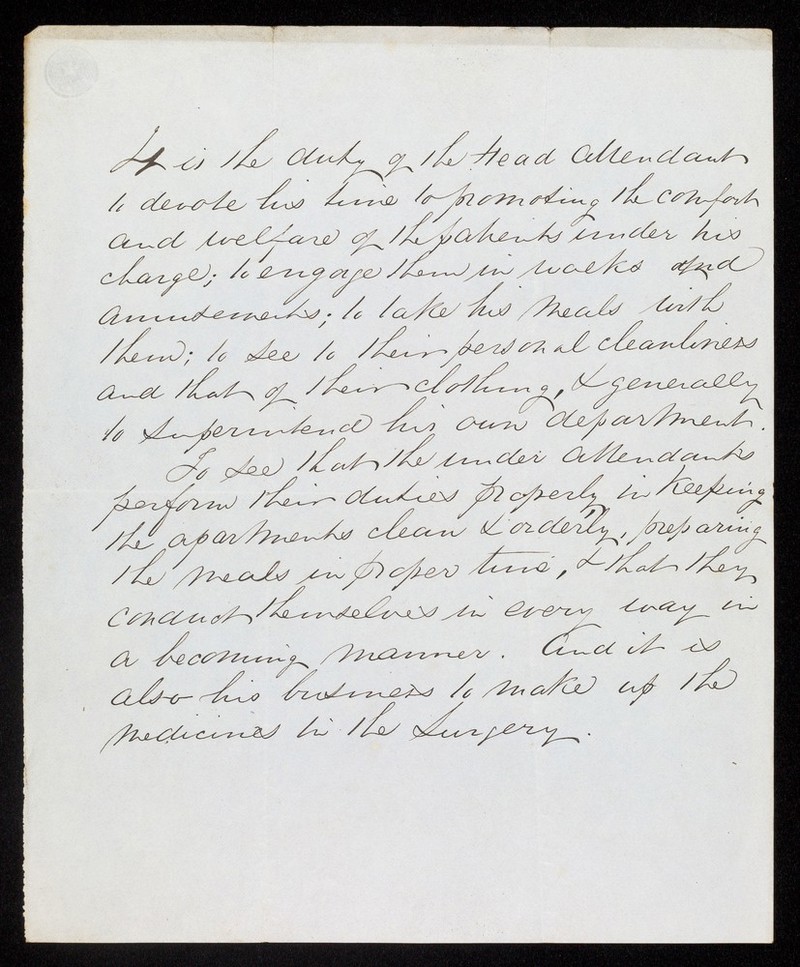 It is the duty of the Head Attendant
to devote his time to promoting the comfort
and welfare of the patients under his
charge; to engage them in walks and
amusements; to take his meals with
them; to see to their personal cleanliness
and that of their clothing, & generally
to superintend his own department.
To see that the under attendants
perform their duties properly in keeping
the apartments clean & orderly, preparing
the meals in proper time, & that they
conduct themselves in every way in
a becoming manner. And it is
also his business to make up the
medicines in the Surgery.